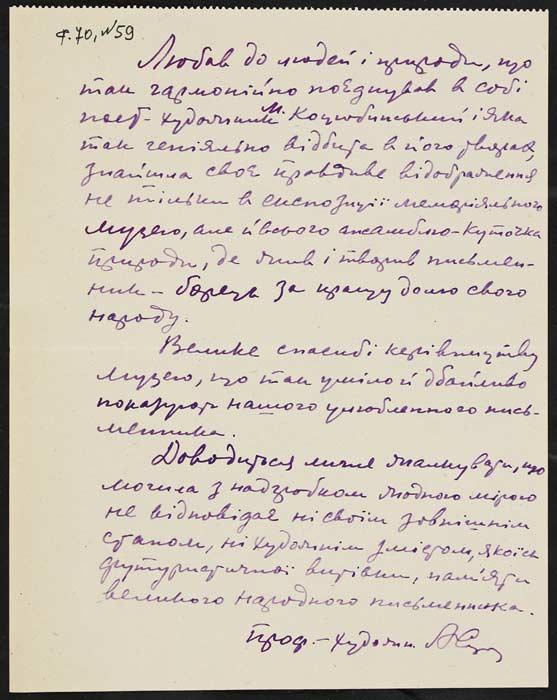 ф. 70, №59
Любов до людей і природи, що
так гармонійно поєднував в собі
поет-художник М. Коцюбинський і яка
так геніально відбита в його творах,
знайшла своє правдиве відображення
не тільки в експозиції меморіяльного
музею, але й всього ансамблю-куточка
природи, де жив і творив письмен-
ник – борець за кращу долю свого
народу.
Велике спасибі керівництву
музею, що так уміло й дбайливо
показують нашого улюбленного пись-
менника.
Доводиться лише жалкувати, що
могила з надгробком жодною мірою
не відповідає ні своїм зовнішнім
станом, ні художнім змістом, якоїсь
футуристичної витівки, пам'яти
великого народного письменника.
Проф. – художн.